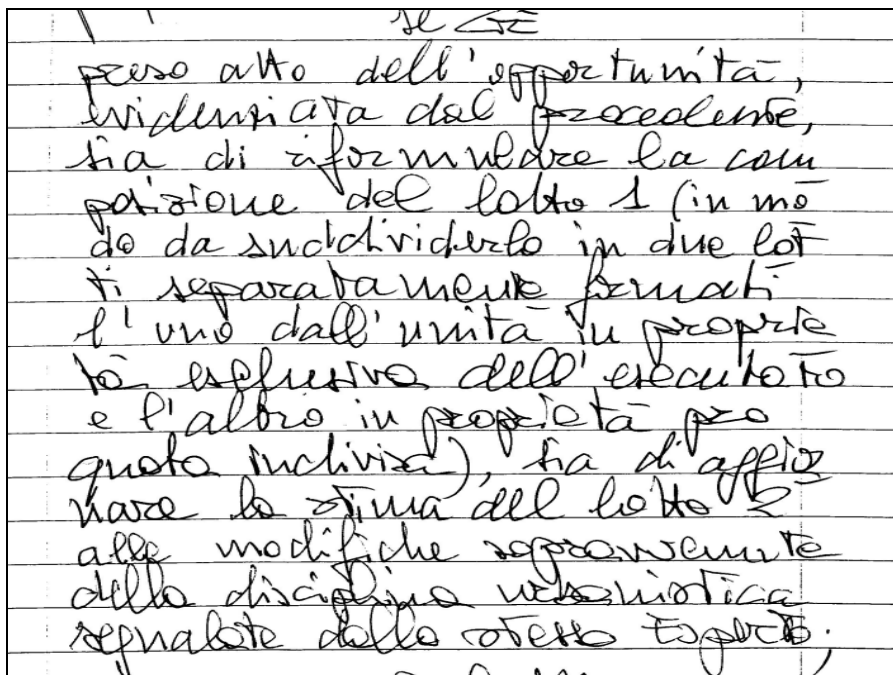 se GE
preso atto dell'opportunità,
evidenziata dal procedente,
sia di riformulare la com
posizione del lotto 1 (in mo
do da suddividerlo in due lot
ti separatamente formati
l'uno dall'unità in proprie
tà esclusiva dell'esecutato
e l'altro in proprietà pro
quota indivisa), sia di aggior
nare la stima del lotto 2
alle modifiche sopravvenute
della disciplina urbanistica
segnalate dallo stesso Esperto;